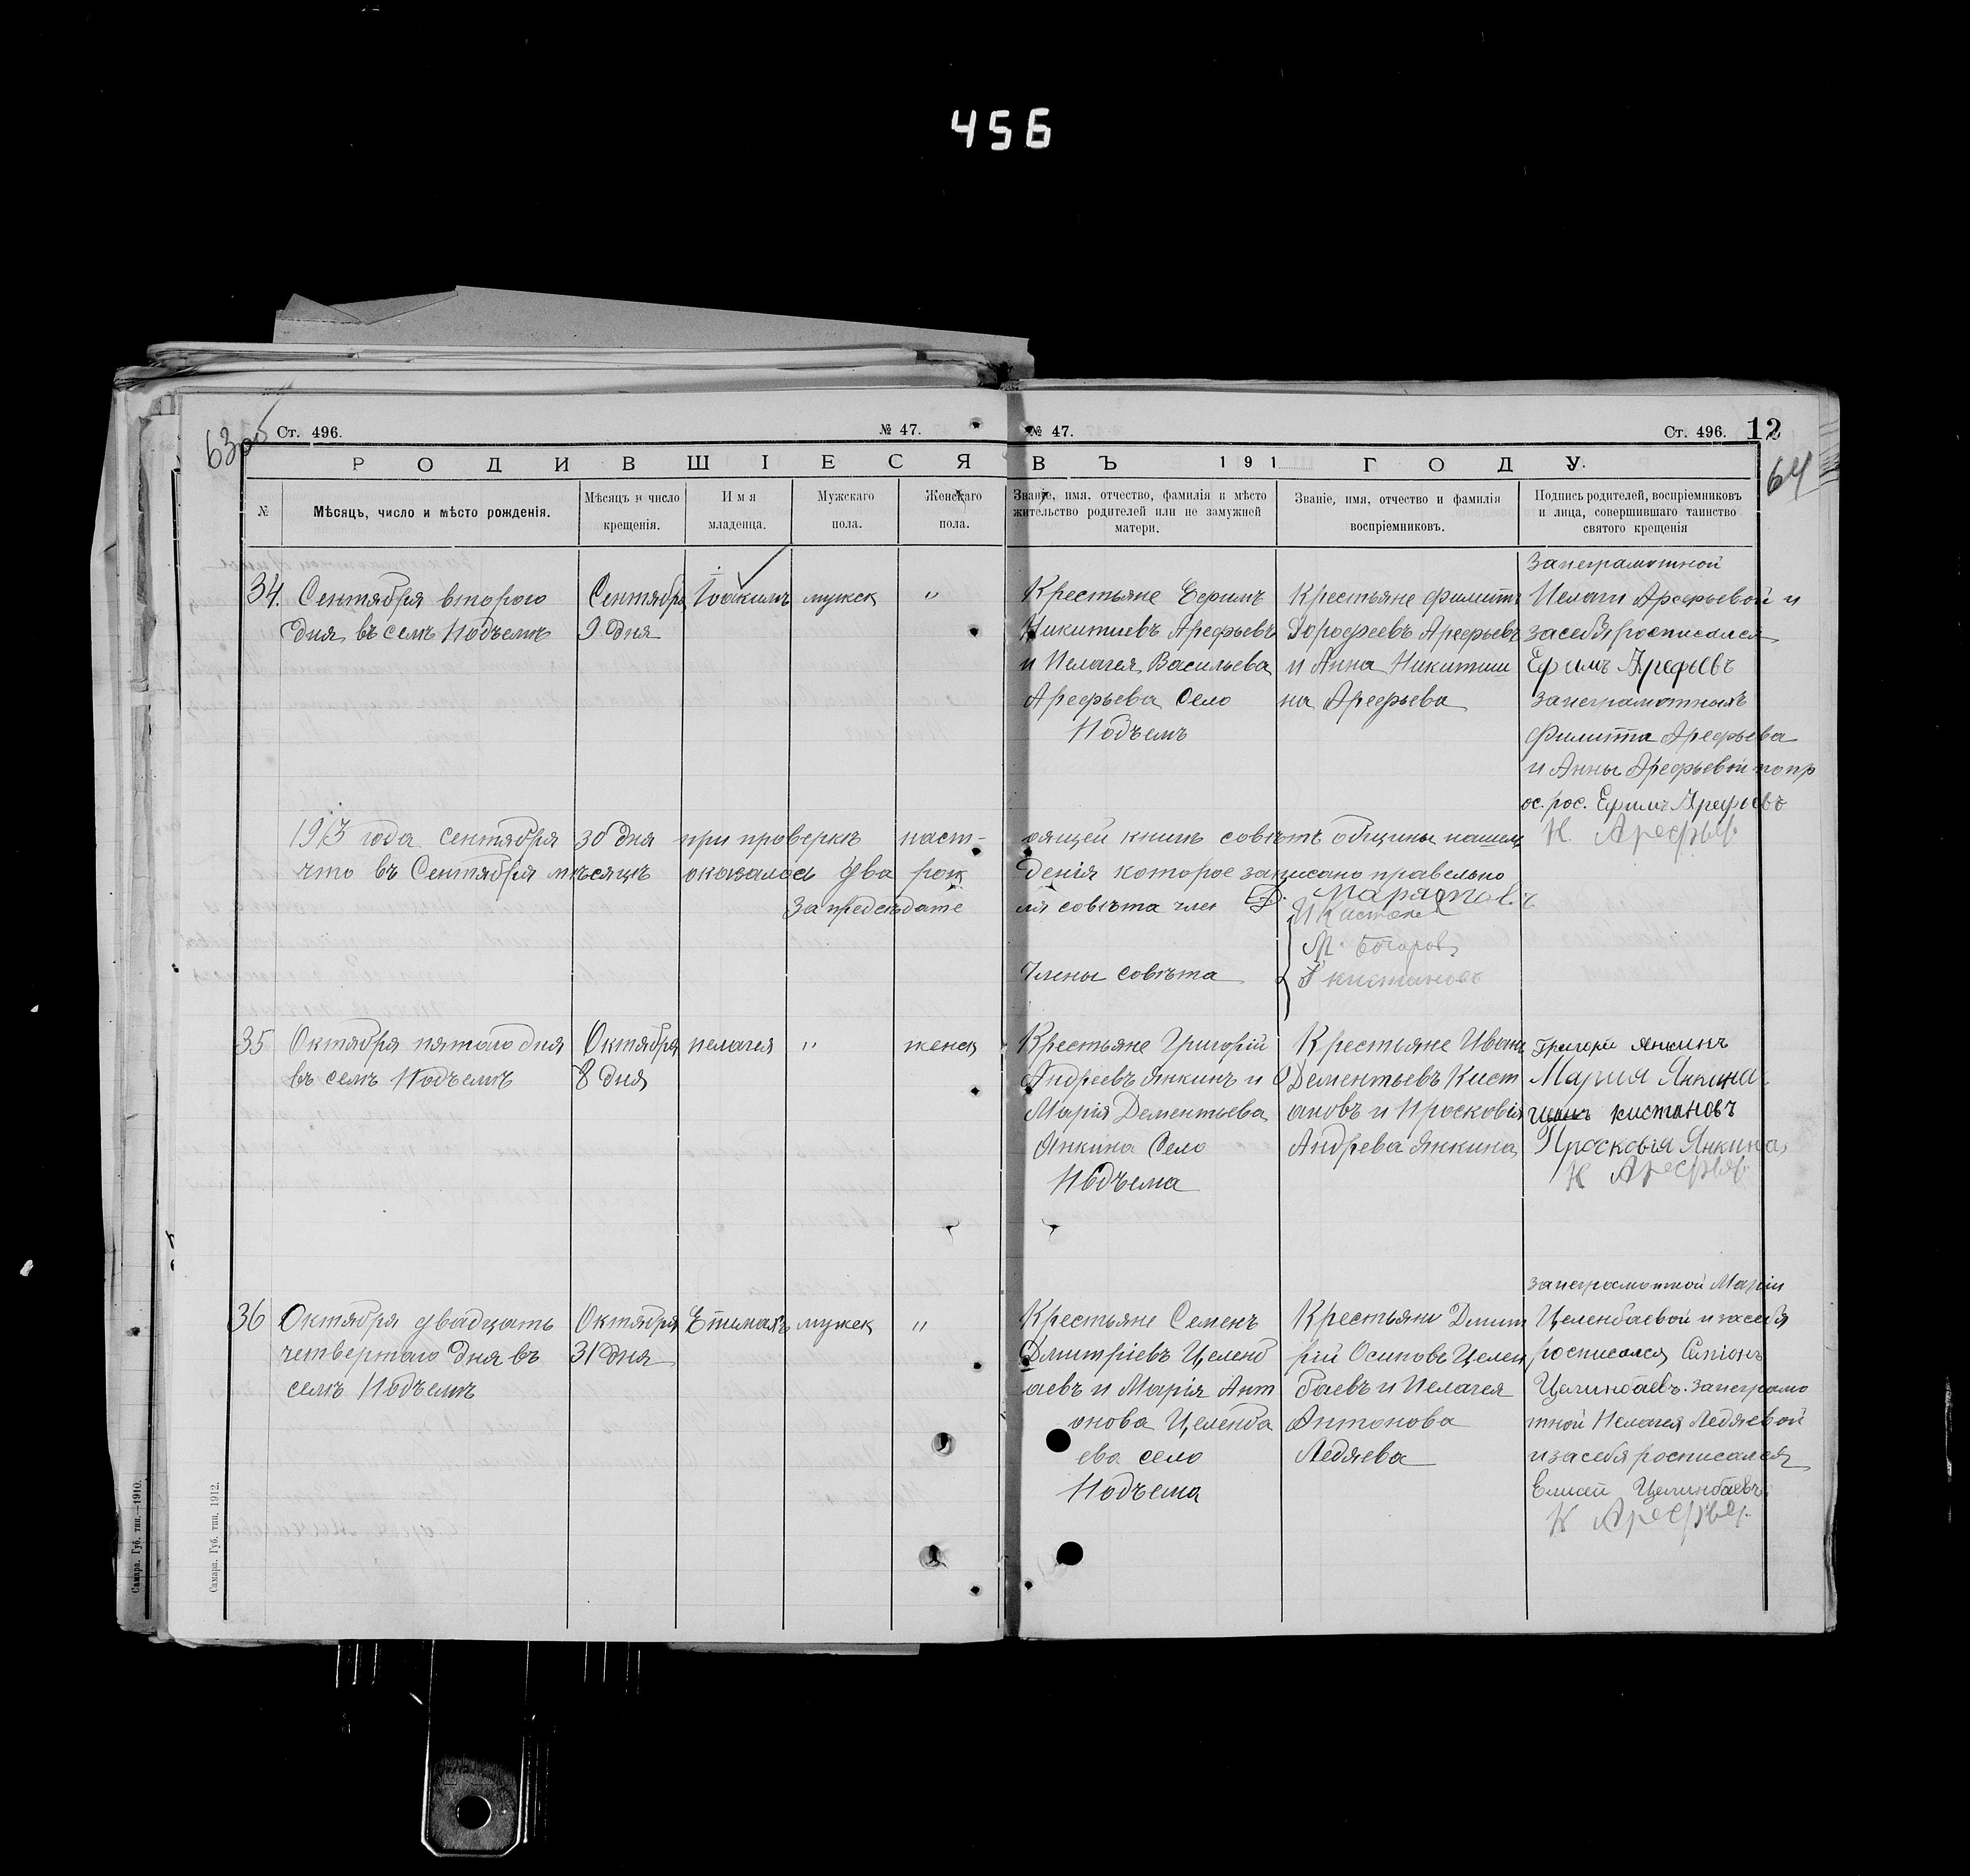 456
63об
Ст. 496.
№ 47.
№ 47.
Ст. 496.
12
64
РОДИВШІЕСЯ ВЪ 191 ГОДУ.
№
Мѣсяцъ, число и мѣсто рожденія.
Мѣсяцъ и число
крещенія.
Имя
младенца.
Мужскаго
пола.
Женскаго
пола.
Званіе, имя, отчество, фамилія и мѣсто
жительство родителей или не замужней
матери.
Званіе, имя, отчество и фамилія
воспріемниковъ.
Подпись родителей, воспріемниковъ
и лица, совершившаго таинство
святого крещенія
34.
Сентября второго
дня въ селѣ Подъемѣ
Сентября
9 дня
Іоакимъ
мужск
"
Крестьяне Ефимъ
Никитиевъ Арефьевъ
и Пелагея Васильева
Арефьева Село
Подъемъ
Крестьяне Филиппъ
Дорофеевъ Арефьевъ
и Анна Никитиш
на Арефьева
Занеграмотной
Пелаги Арефьевой и
засебя росписался
Ефимъ Арефьевъ
Занеграмотныхъ
Филиппа Арефьева
и Анны Арефьевой по пр
ос. рос. Ефимъ Арефьевъ
К. Арефьев
1913 года сентября 30 дня при проверкѣ наст-
оящей книги совѣтъ общины нашелъ
что въ Сентября мѣсяцѣ оказалось два рож
денія которое записано правельно
За председате
ля совѣта член
Члены совѣта
М. Бочаров
Кистановъ
35
Октября пятого дня
въ селѣ Подъемѣ
Октября
8 дня
пелагея
"
женск
Крестьяне Григорій
Андреевъ Янкинъ и
Марія Дементьева
Янкина Село
Подъема
Крестьяне Иванъ
Дементьевъ Кист
ановъ и Просковія
Андрева Янкина
Григори Янкинъ
Мария Янкина
кистановъ
Просковья Янкина
К Арефьев
36
Октября двадцать
четвертаго дня въ
селѣ Подъемѣ
Октября
31 дня
мужск
"
Крестьяне Семенъ
Дмитріевъ Целенб
аевъ и Марія Ант
онова Целенба
ева село
Подъема
Крестьяни Дмит
рій Осиповъ Целен
баевъ и Пелагея
Антонова
Ледяева
Занеграмотной Маріи
Целенбаевой и засебя
росписался
Целинбаевъ. Занеграмо
тной Пелагея Ледяевой
и засебя росписался
Целинбаевъ
К Арефьев
Самара. Губ. тип.—1910.
Самара. Губ. тип. 1912.